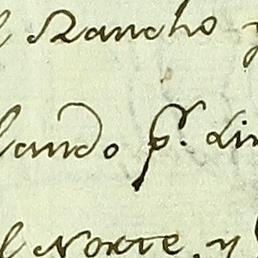 l Rancho y
lando pr. Lin
l Norte, y